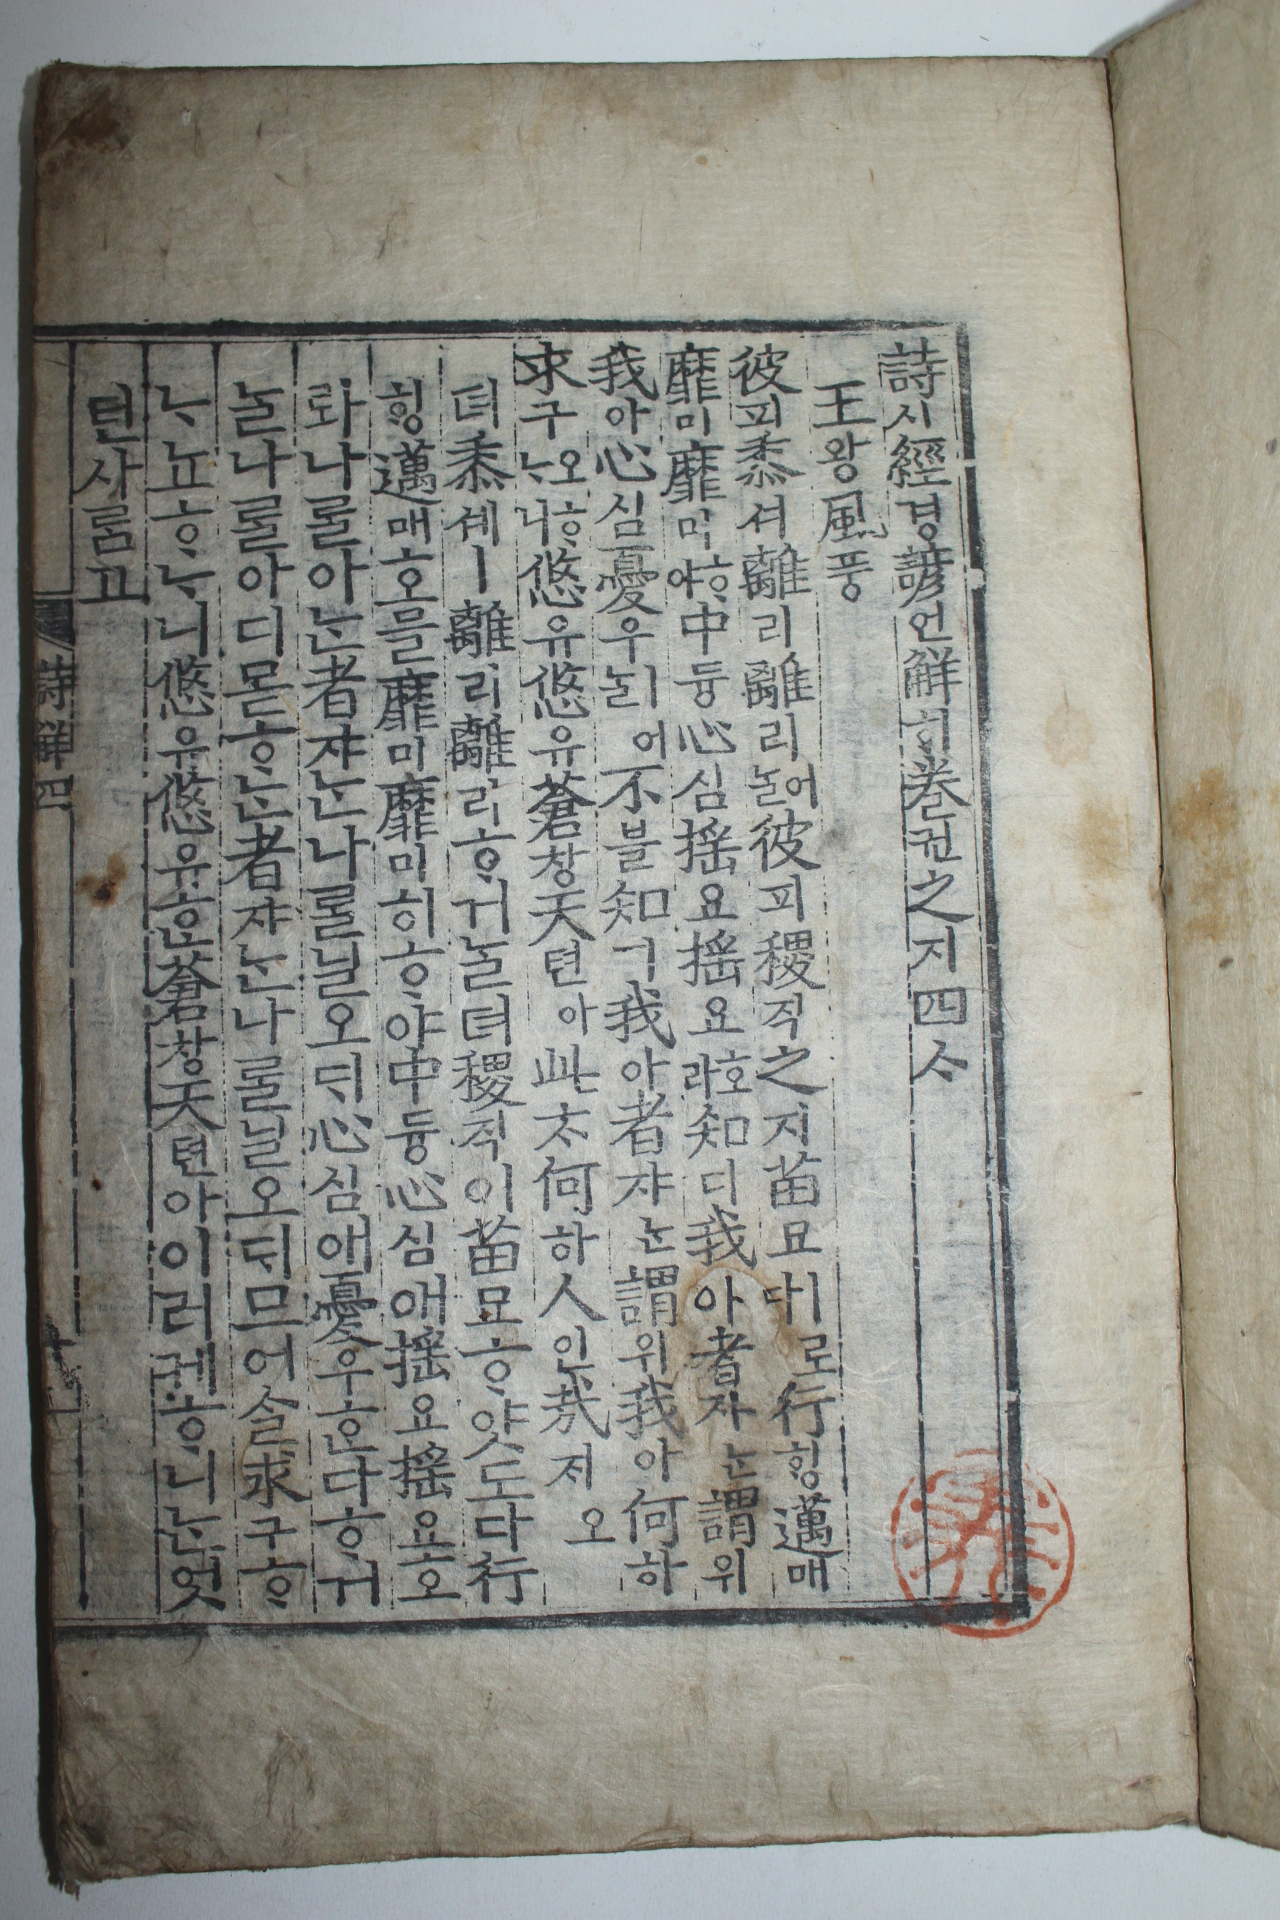 詩시經경諺언解ᄒᆡ卷권之지四ᄉᆞ
王왕風풍
彼피黍셔離리離리어ᄂᆞᆯ彼피稷직之지苗묘ㅣ로다行ᄒᆡᆼ邁매
靡미靡미ᄒᆞ야中듕心심搖요搖요호라知디我아者쟈ᄂᆞᆫ謂위
我아心심憂우ㅣ어ᄂᆞᆯ不블知디我아者쟈ᄂᆞᆫ謂위我아何하
求구오ᄒᆞᄂᆞ니悠유悠유蒼창天텬아此ᄎᆞ何하人인哉ᄌᆡ오
뎌黍셔ㅣ離리離리ᄒᆞ거ᄂᆞᆯ뎌稷직이苗묘ᄒᆞ얏도다行
ᄒᆡᆼ邁매호믈靡미靡미히ᄒᆞ야中듕心심애搖요搖요호
롸나ᄅᆞᆯ아ᄂᆞᆫ者쟈ᄂᆞᆫ나ᄅᆞᆯ닐오ᄃᆡ心심애憂우ᄒᆞᆫ다ᄒᆞ거
ᄂᆞᆯ나ᄅᆞᆯ아디몯ᄒᆞᄂᆞᆫ者쟈ᄂᆞᆫ나ᄅᆞᆯ닐오ᄃᆡ므어슬求구ᄒᆞ
ᄂᆞ뇨ᄒᆞᄂᆞ니悠유悠유ᄒᆞᆫ蒼창天텬아이러케ᄒᆞ니ᄂᆞᆫ엇
던사ᄅᆞᆷ고
詩解四